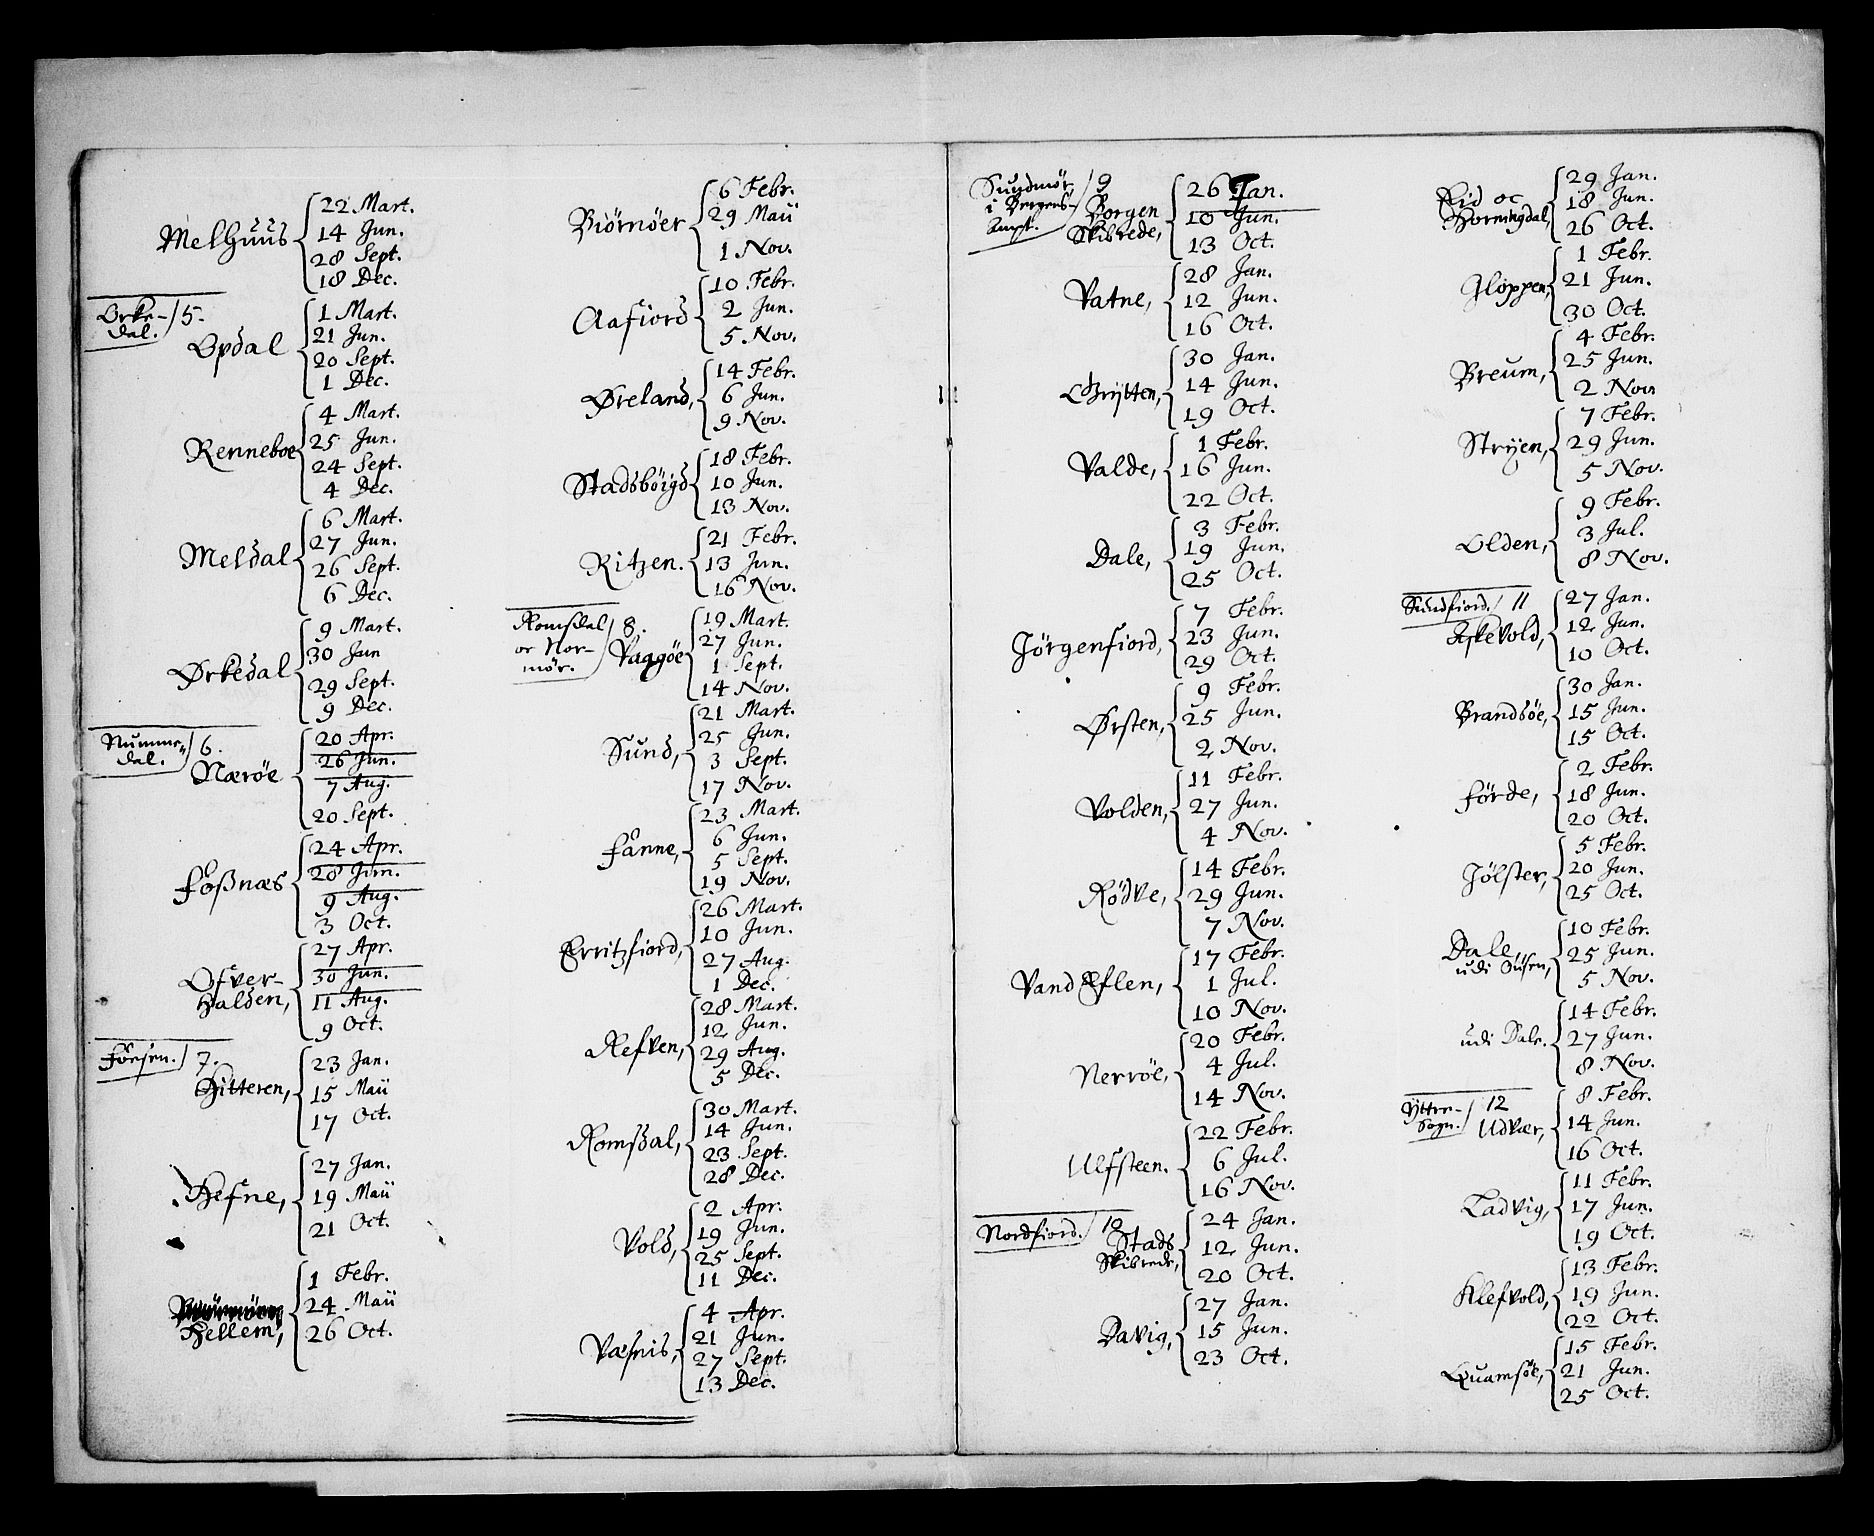 Melhuus
22 Mart.
14 Jun.
28 Sept.
18 Dec.
Orke-
dal. / 5.
Opdal
1 Mart.
21 Jun.
20 Sept.
1 Dec.
Renneboe
4 Mart.
25 Jun.
24 Sept.
4 Dec.
Meldal
6 Mart.
27 Jun.
26 Sept.
6 Dec.
Ørkedal
9 Mart.
30 Jun
29 Sept.
9 Dec.
Numme-
dal. / 6.
Nærøe
20 Apr.
26 Jun.
7 Aug.
20 Sept.
Foßnæs
24 Apr.
28 Jun.
9 Aug.
3 Oct.
Ofver-
halden,
27 Apr.
30 Jun.
11 Aug.
9 Oct.
Foesen. / 7.
Hitteren,
23 Jan.
15 Maii
17 Oct.
Hefne,
27 Jan.
19 Maii
21 Oct.
Hellem,
1 Febr.
24 Maii
26 Oct.
Biörnöer
6 Febr.
29 Maii
1 Nov.
Aafiord
10 Febr.
2 Jun.
5 Nov.
Øreland,
14 Febr.
6 Jun.
9 Nov.
Stadsböigd
18 Febr.
10 Jun.
13 Nov.
Ritzen.
21 Febr.
13 Jun.
16 Nov.
Romsdal
oc Nor-
mör. / 8.
Vaggöe
19 Mart.
27 Jun.
1 Sept.
14 Nov.
Sund,
21 Mart.
25 Jun.
3 Sept.
17 Nov.
Fanne,
23 Mart.
6 Jun.
5 Sept.
19 Nov.
Erritzfiord,
26 Mart.
10 Jun.
27 Aug.
1 Dec.
Refven,
28 Mart.
12 Jun.
29 Aug.
5 Dec.
Romsdal,
30 Mart.
14 Jun.
23 Sept.
28 Dec.
Vold,
2 Apr.
19 Jun.
25 Sept.
11 Dec.
Væfnis,
4 Apr.
21 Jun.
27 Sept.
13 Dec.
Sundmör
i Bergens-
Ampt. / 9
Borgen
Skibrede,
26 Jan.
10 Jun.
13 Oct.
Vatne,
28 Jan.
12 Jun.
16 Oct.
Grytten,
30 Jan.
14 Jun.
19 Oct.
Valde,
1 Febr.
16 Jun.
22 Oct.
Dale,
3 Febr.
19 Jun.
25 Oct.
Jörgenfiord,
7 Febr.
23 Jun.
29 Oct.
Ørsten,
9 Febr.
25 Jun.
2 Nov.
Volden,
11 Febr.
27 Jun.
4 Nov.
Rödve,
14 Febr.
29 Jun.
7 Nov.
Vand Eflen,
17 Febr.
1 Jul.
10 Nov.
Nerröe,
20 Febr.
4 Jul.
14 Nov.
Ulfsteen.
22 Febr.
6 Jul.
16 Nov.
Nordfiord. / 10
Stads
Skibrede,
24 Jan.
12 Jun.
20 Oct.
Davig,
27 Jan.
15 Jun.
23 Oct.
Eid oc
Horningdal,
29 Jan.
18 Jun.
26 Oct.
Gloppen,
1 Febr.
21 Jun.
30 Oct.
Breum,
4 Febr.
25 Jun.
2 Nov.
Stryen,
7 Febr.
29 Jun.
5 Nov.
Olden,
9 Febr.
3 Jul.
8 Nov.
Sundfiord. / 11
Askevold,
27 Jan.
12 Jun.
10 Oct.
Brandsöe,
30 Jan.
15 Jun.
15 Oct.
Förde,
2 Febr.
18 Jun.
20 Oct.
Jölster,
5 Febr.
20 Jun.
25 Oct.
Dale
udi Ousen,
10 Febr.
25 Jun.
5 Nov.
udi Dale.
14 Febr.
27 Jun.
8 Nov.
Ytter-
Sogn. / 12
Udvær,
8 Febr.
14 Jun.
16 Oct.
Ladvig,
11 Febr.
17 Jun.
19 Oct.
Klefvold,
13 Febr.
19 Jun.
22 Oct.
Quamsöe,
15 Febr.
21 Jun.
25 Oct.